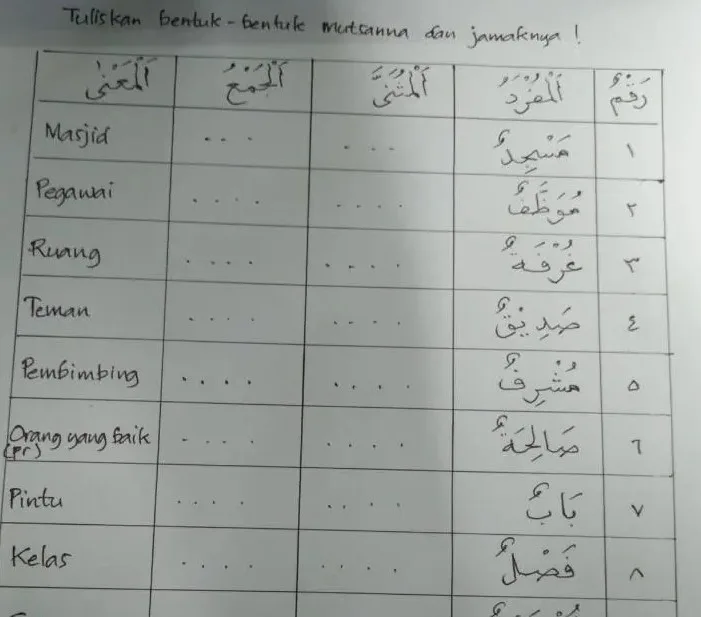 Tuliskan bentuk-bentuk mutsanna dan jamaknya !
رَقْمٌ اَلْمُفْرَدُ اَلْمُثَنَّى اَلْجَمْعُ اَلْمَعْنَى
١ مَسْجِدٌ ... ... Masjid
٢ مُوَظَّفٌ .... .... Pegawai
٣ غُرْفَةٌ .... .... Ruang
٤ صَدِيْقٌ .... .... Teman
٥ مُشْرِفٌ .... .... Pembimbing
٦ صَالِحَةٌ .... .... Orang yang baik (pr)
٧ بَابٌ .... .... Pintu
٨ فَصْلٌ .... .... Kelas